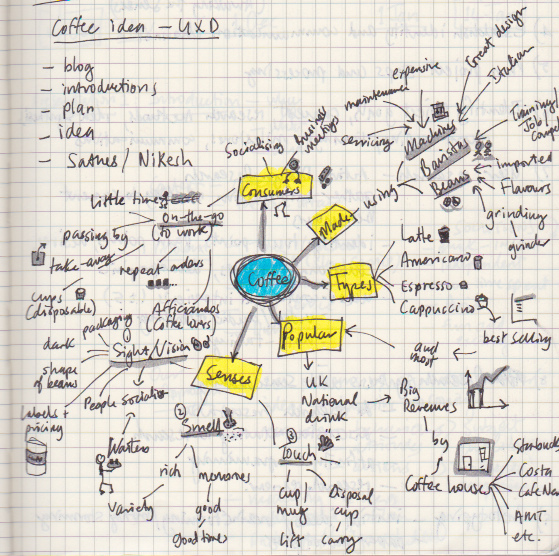 Coffee idea - UXD
- blog
- introductions
- plan
- idea
- Sathes / Nikesh
Coffee
Consumers
Socialising
business
meetings
on-the-go
(to work)
little time
passing by
take-away
cups
(disposable)
repeat orders
Afficianados
(Coffee lovers)
Made
using
Machines
servicing
maintenance
expensive
Great design
Italian
Barista
Training/
Job/
Beans
imported
Flavours
grinding
grinder
Types
Latte
Americano
Espresso
Cappuccino
best selling
and
most
Popular
UK
National
drink
Big
Revenues
by
Coffee houses
Starbucks
Costa
Cafe Nero
AMT
etc.
Senses
①
Sight/Vision
packaging
dark
shape
of beans
labels +
pricing
People Socialise
Waiters
②
Smell
rich
Variety
memories
good
good times
③
Touch
cup/
mug
lift
Disposal
cup
carry